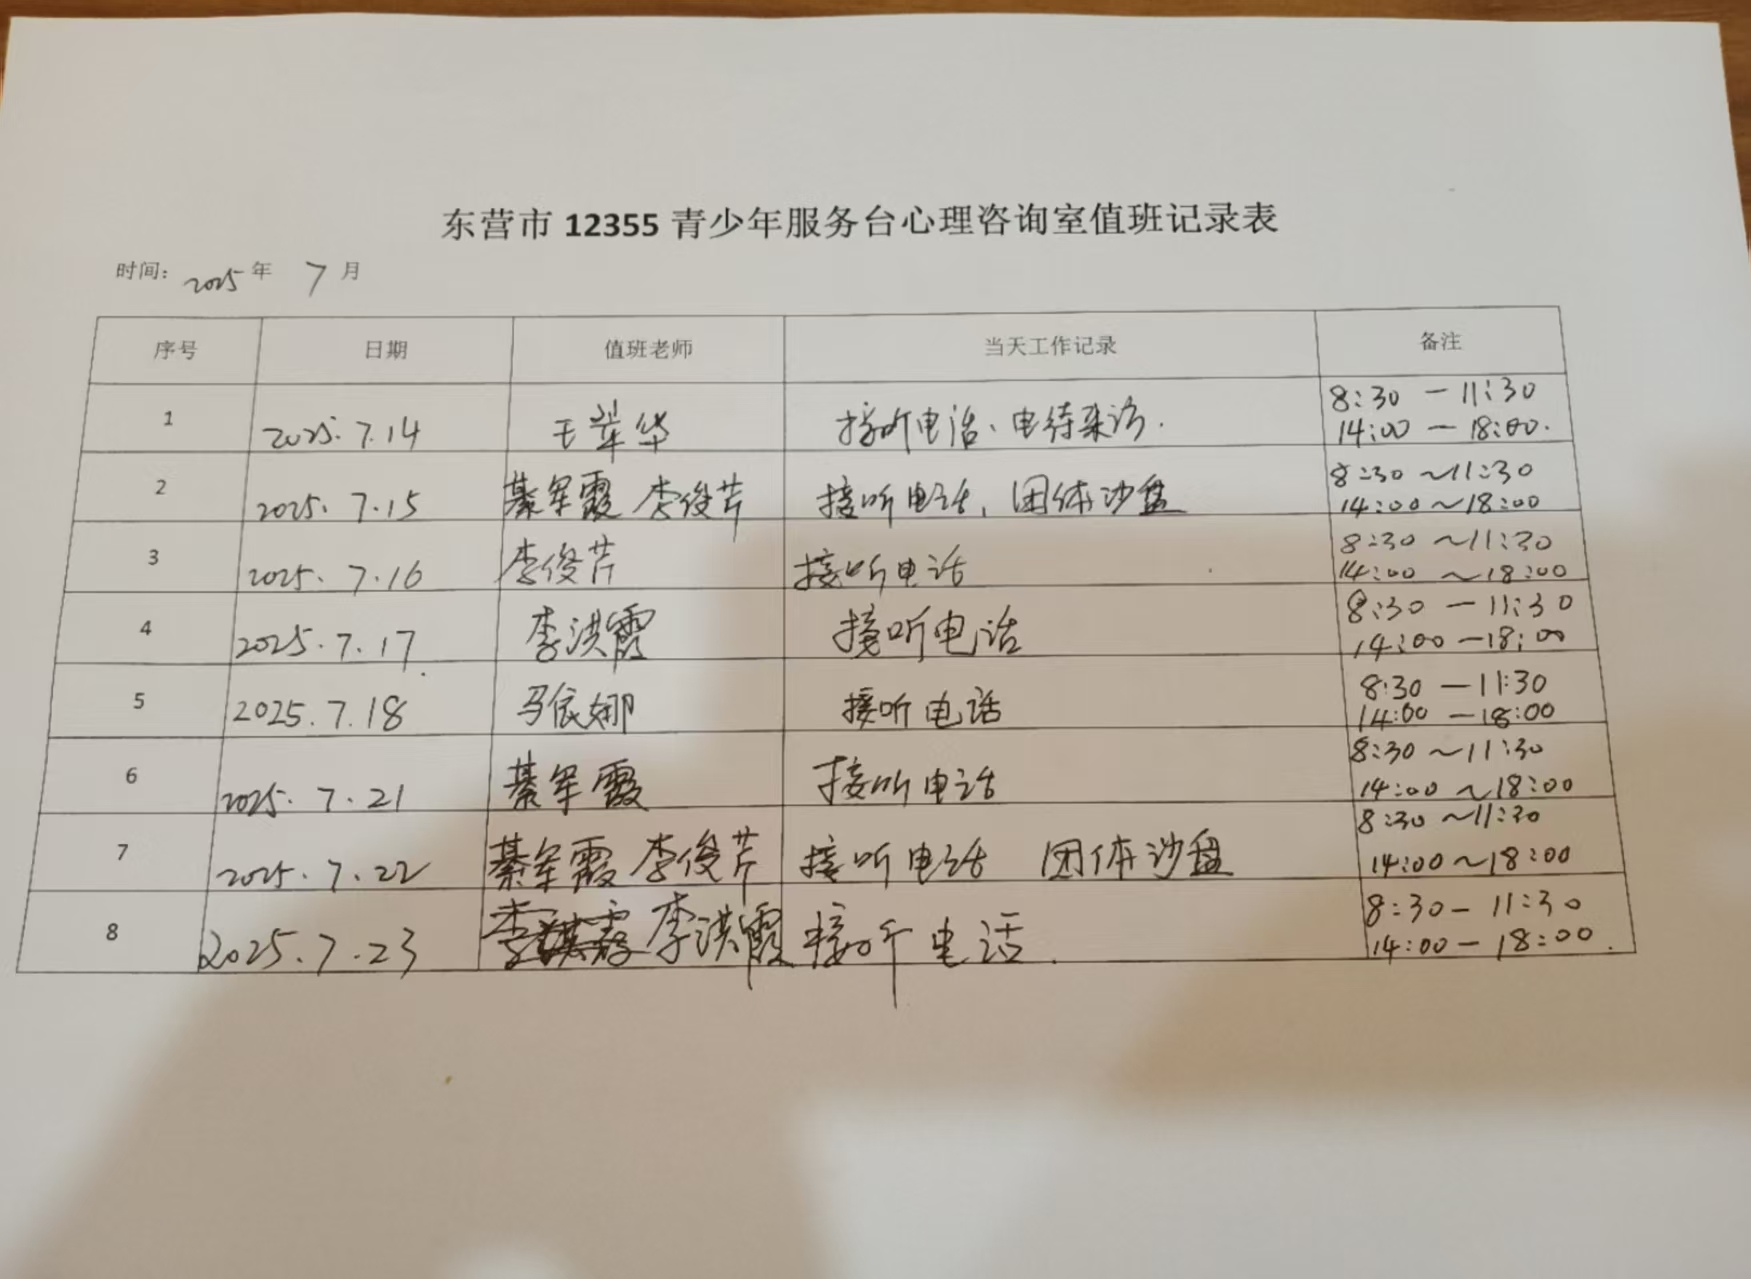 东营市 12355 青少年服务台心理咨询室值班记录表
时间: 2025 年 7 月
序号 日期 值班老师 当天工作记录 备注
1 2025.7.14 王翠华 接听电话、电待来访. 8:30 — 11:30
14:00 — 18:00.
2 2025.7.15 綦军霞 李俊芹 接听电话, 团体沙盘 8:30 ~11:30
14:00~18:00
3 2025.7.16 李俊芹 接听电话 8:30 ~11:30
14:00 ~18:00
4 2025.7.17. 李洪霞 接听电话 8:30 — 11:30
14:00 — 18:00
5 2025.7.18 马依娜 接听电话 8:30 — 11:30
14:00 — 18:00
6 2025.7.21 綦军霞 接听电话 8:30 ~11:30
14:00 ~18:00
7 2025.7.22 綦军霞 李俊芹 接听电话 团体沙盘 8:30 ~11:30
14:00~18:00
8 2025.7.23 李洪霞 接听电话. 8:30 — 11:30
14:00 — 18:00.